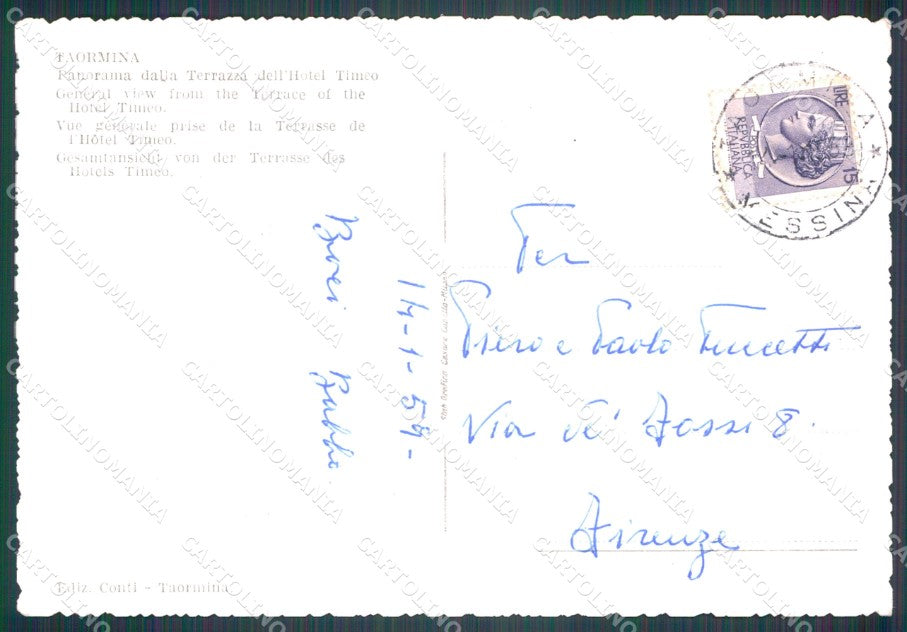 TAORMINA
Panorama dalla Terrazza dell'Hotel Timeo
General view from the Terrace of the
Hotel Timeo.
Vue générale prise de la Terrasse de
l'Hôtel Timeo.
Gesamtansicht von der Terrasse des
Hotels Timeo.
LIRE 15
REPVBBLICA
ITALIANA
MESSINA
14-1-59-
Bacci
Babbo
Per
Piero e Paolo
Via de'
8.
Firenze
Ediz. Conti - Taormina
CARTOLINOMANIA